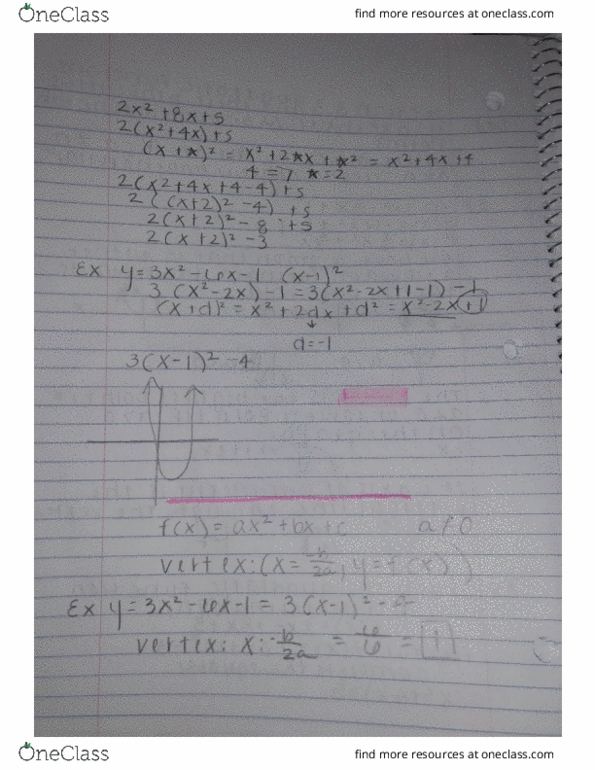 OneClass
find more resources at oneclass.com
2x² + 8x + 5
2(x² + 4x) + 5
(x + *)² = x² + 2*x + *² = x² + 4x + 4
4 = 7 * = 2
2(x2 + 4x + 4 - 4) + 5
2((x+2)² - 4) + 5
2(x+2)² - 8 + 5
2(x+2)² - 3
Ex y = 3x² - 6x - 1 (x-1)²
3(x² - 2x) - 1 = 3(x² - 2x + 1 - 1) - 1
(x + d)² = x² + 2dx + d² = x² - 2x + 1
d = -1
3(x-1)² - 4
f(x) = ax² + bx + c a ≠ 0
vertex: (x = -b/2a, y = f(x))
Ex y = 3x² - 6x - 1 = 3(x-1)² -
vertex: x: -b/2a = 6/6 = 1
OneClass
find more resources at oneclass.com